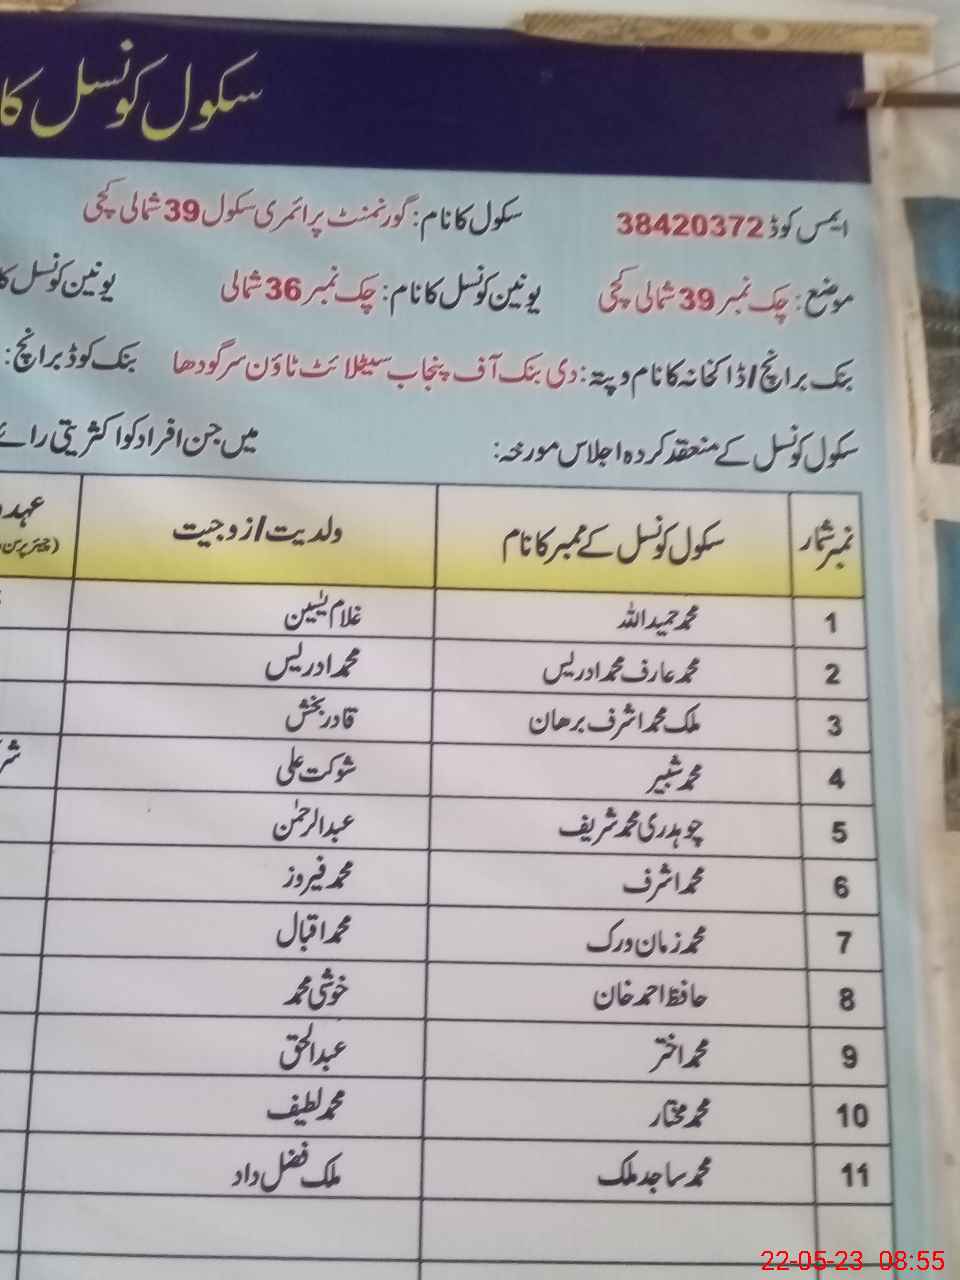 سکول کونسل کا
ایمس کوڈ 38420372 سکول کا نام: گورنمنٹ پرائمری سکول 39 شمالی کچی
موضع: چک نمبر 39 شمالی کچی یونین کونسل کا نام: چک نمبر 36 شمالی یونین کونسل کا
بنک برانچ / ڈاکخانہ کا نام و پتہ: دی بنک آف پنجاب سیٹلائٹ ٹاؤن سرگودھا بنک کوڈ برانچ:
سکول کونسل کے منعقد کردہ اجلاس مورخہ: میں جن افراد کو اکثریتی رائے
نمبر شمار سکول کونسل کے ممبر کا نام ولدیت / زوجیت
1 محمد حمید اللہ غلام یٰسین
2 محمد عارف محمد ادریس محمد ادریس
3 ملک محمد اشرف برھان قادر بخش
4 محمد شبیر شوکت علی
5 چوہدری محمد شریف عبدالرحمٰن
6 محمد اشرف محمد فیروز
7 محمد زمان ورک محمد اقبال
8 حافظ احمد خان خوشی محمد
9 محمد اختر عبدالحق
10 محمد مختار محمد لطیف
11 محمد ساجد ملک ملک فضل داد
22-05-23 08:55